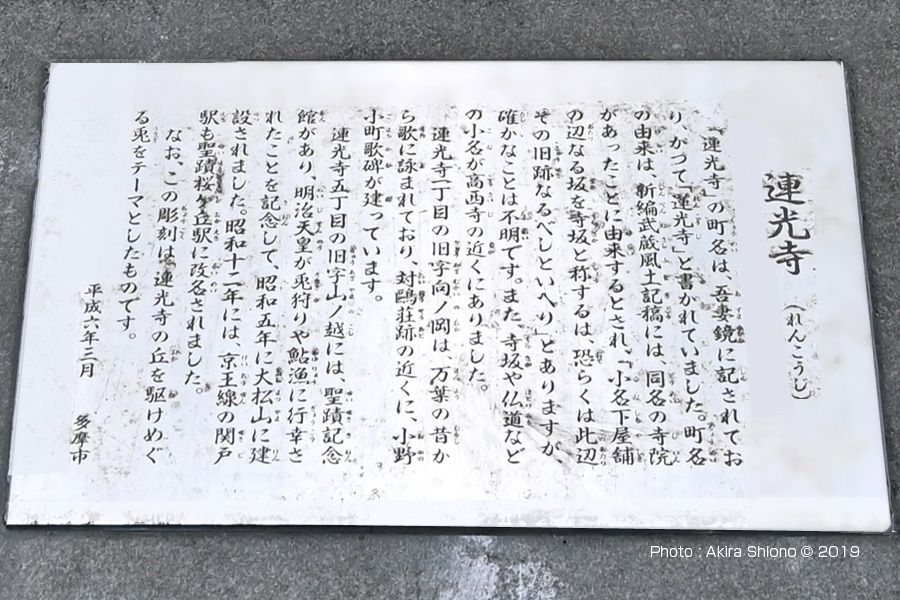 連光寺 (れんこうじ)
「連光寺」の町名は、吾妻鏡に記されてお
り、かつて「蓮光寺」と書かれていました。町名
の由来は、新編武蔵風土記稿には、同名の寺院
があったことに由来するとされ、「小名下屋舗
の辺なる坂を寺坂と称するは、恐らくは此辺
その旧跡なるべしといへり」とありますが、
確かなことは不明です。また、寺坂や仏道など
の小名が高西寺の近くにありました。
連光寺一丁目の旧字向ノ岡は、万葉の昔か
ら歌に詠まれており、対鷗荘跡の近くに、小野
小町歌碑が建っています。
連光寺五丁目の旧字山ノ越には、聖蹟記念
館があり、明治天皇が兎狩りや鮎漁に行幸さ
れたことを記念して、昭和五年に大松山に建
設されました。昭和十二年には、京王線の関戸
駅も聖蹟桜ヶ丘駅に改名されました。
なお、この彫刻は、連光寺の丘を駆けめぐ
る兎をテーマとしたものです。
平成六年三月 多摩市
Photo : Akira Shiono © 2019